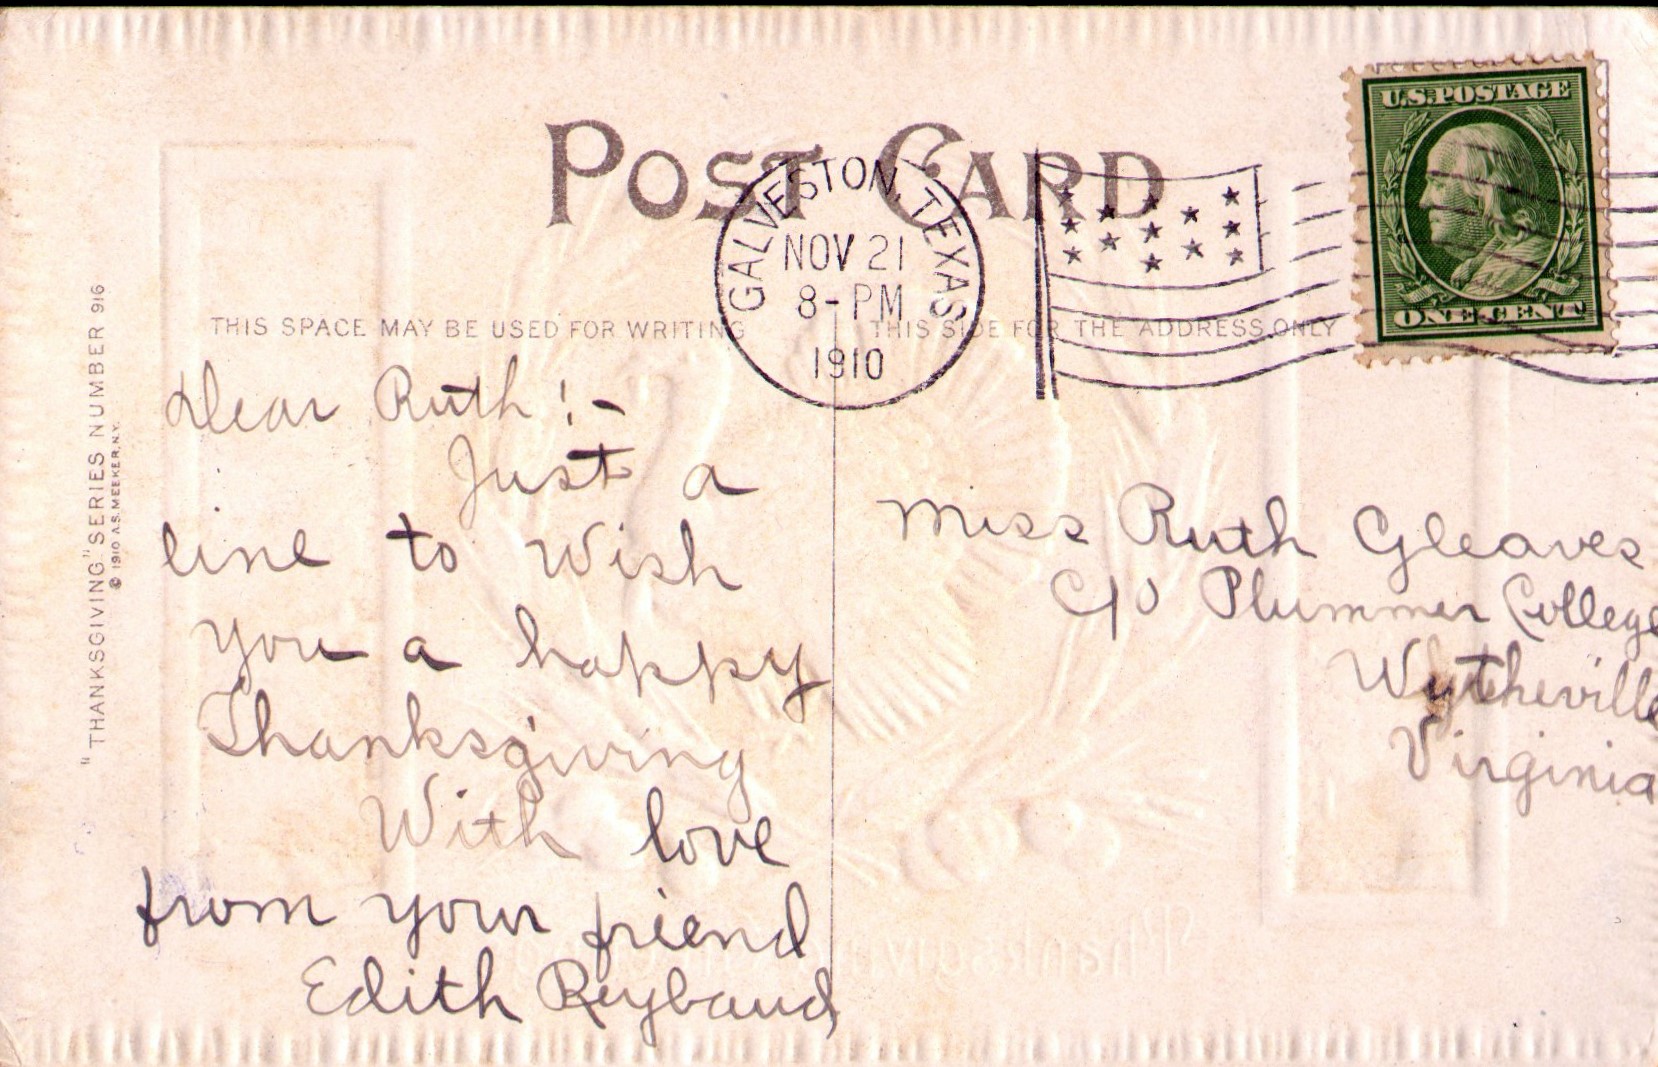 POST CARD
U.S. POSTAGE
ONE CENT
GALVESTON, TEXAS
NOV 21
8-PM
1910
THIS SPACE MAY BE USED FOR WRITING
THIS SIDE FOR THE ADDRESS ONLY
"THANKSGIVING" SERIES NUMBER 916
© 1910 A.S. MEEKER, N.Y.
Dear Ruth!-
Just a
line to Wish
you a happy
Thanksgiving
With love
from your friend
Edith Reybaud
Miss Ruth Gleaves
C/O Plummer College
Wytheville
Virginia